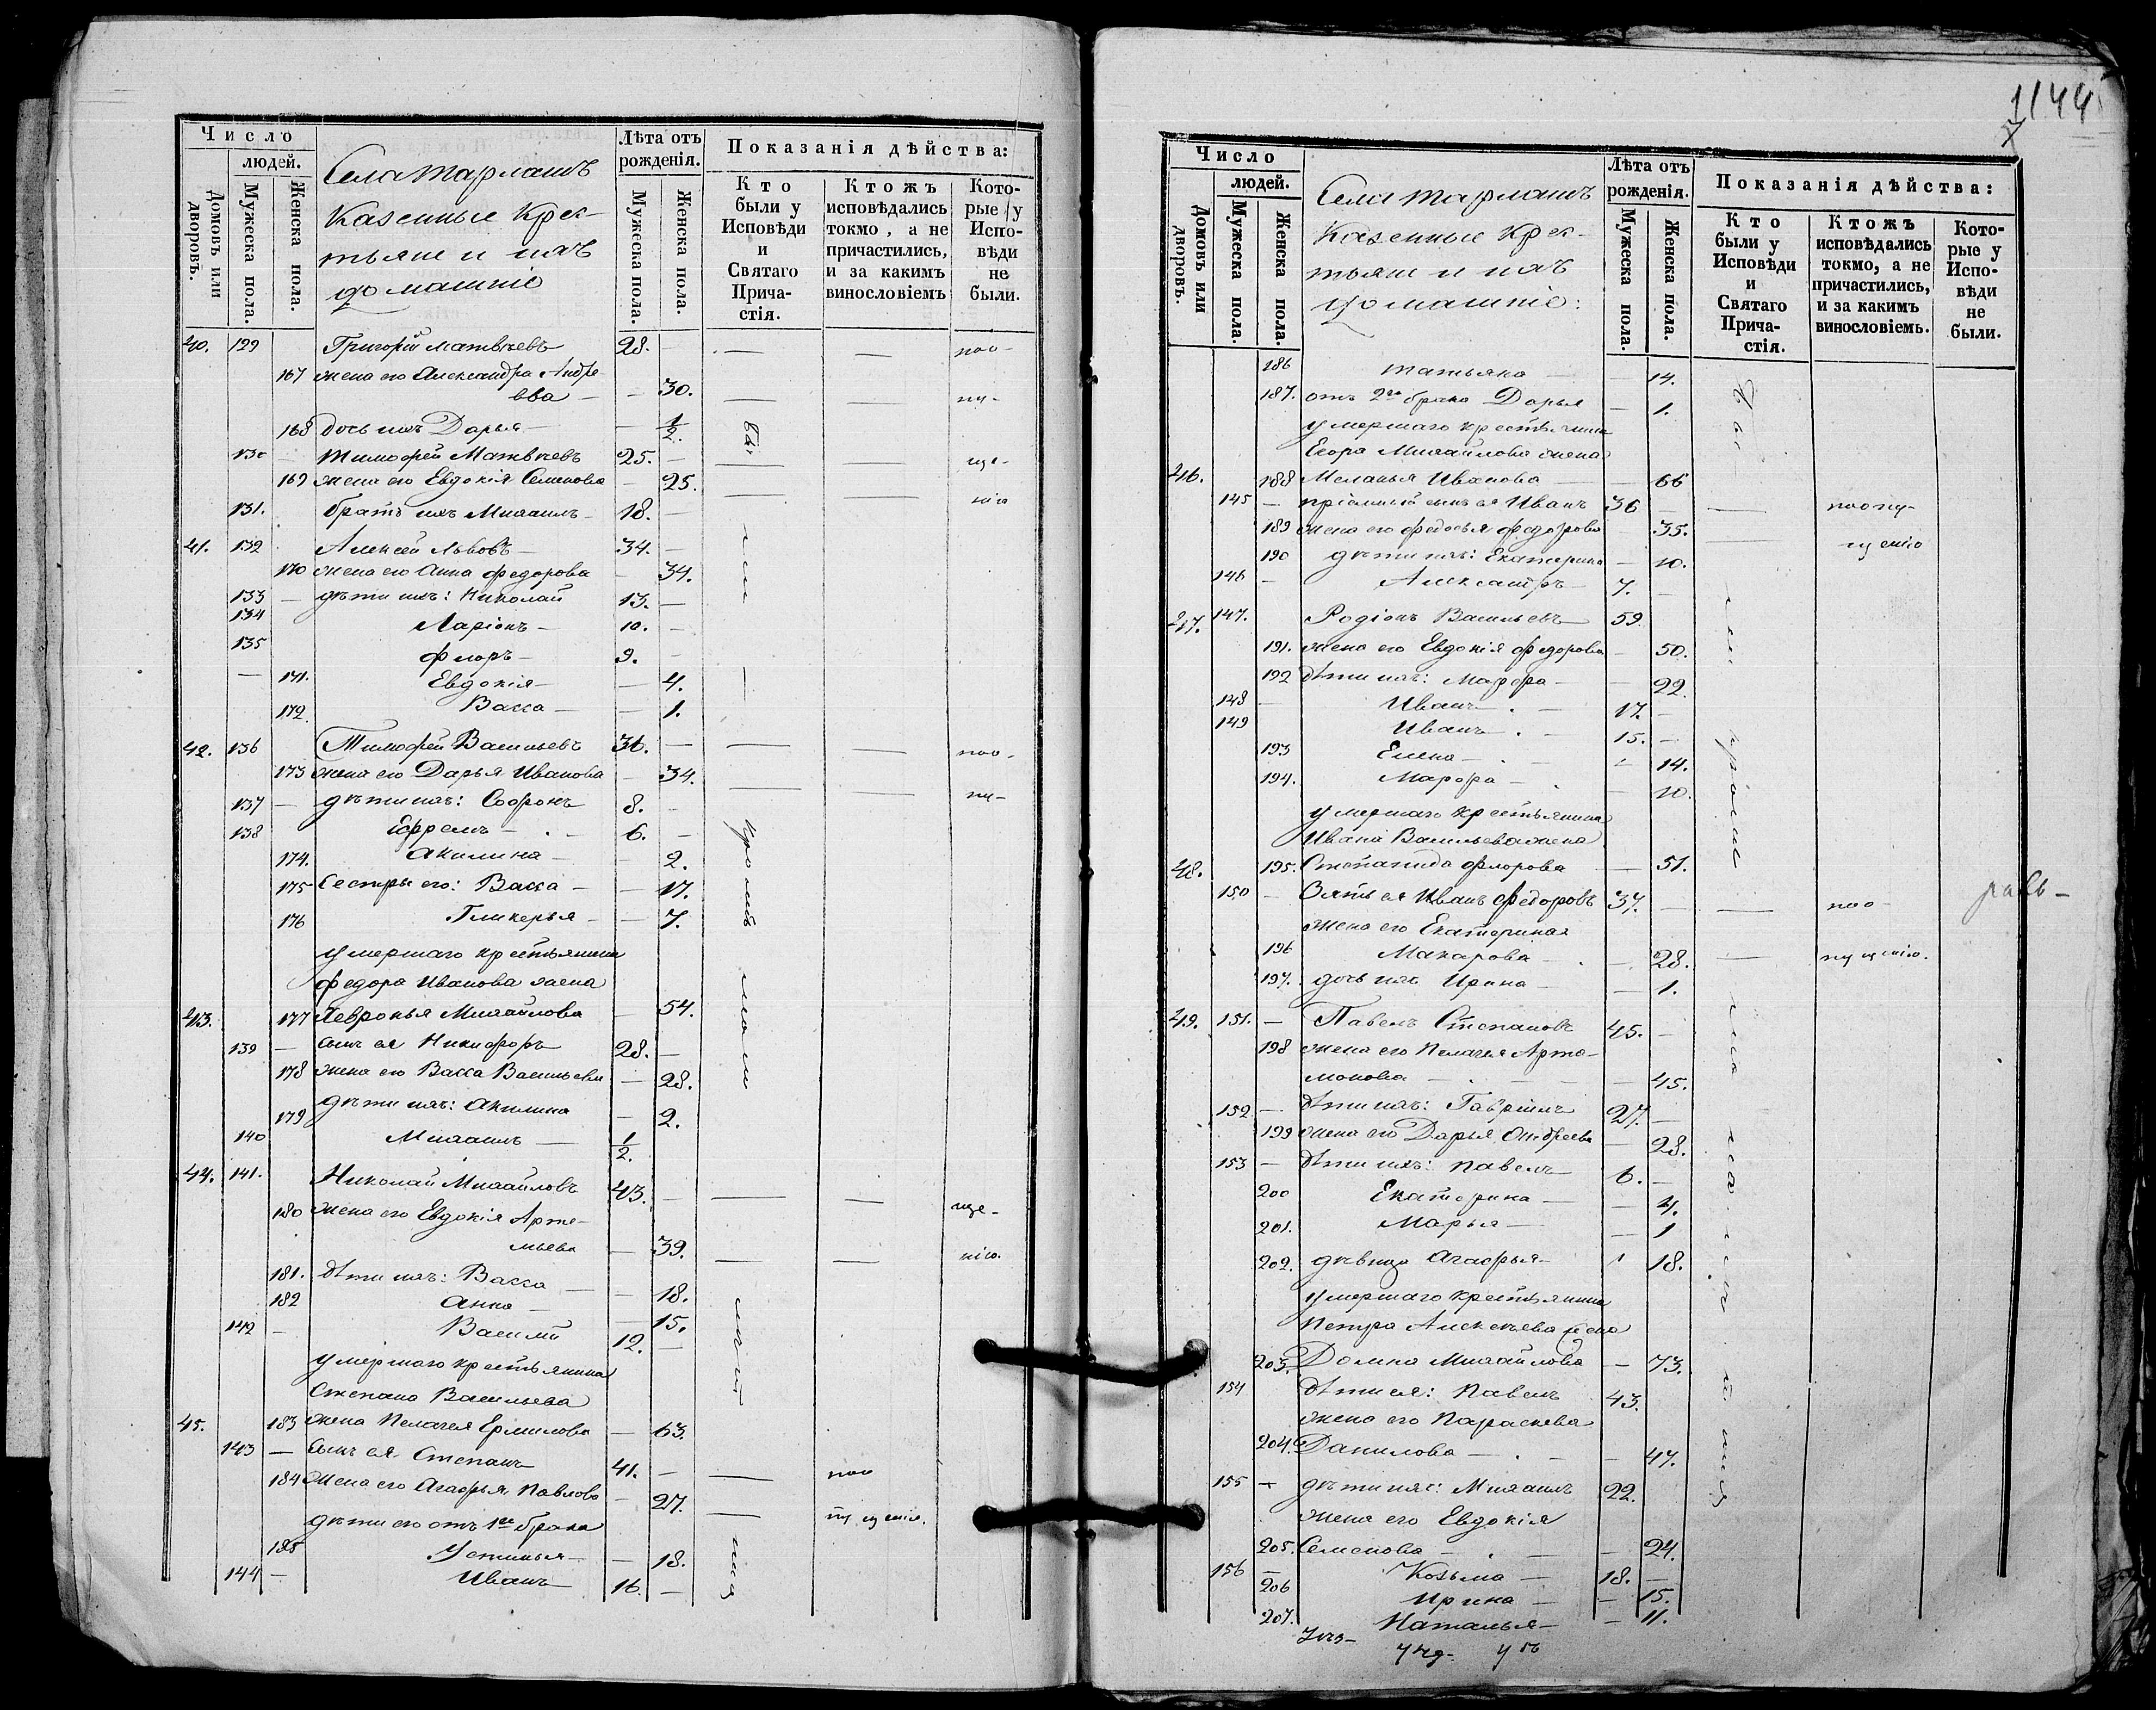 Число
людей.
Домовъ или дворовъ.
Мужеска пола.
Женска пола.
Села Тарлашъ
Казенные Крес-
тьяне и ихъ
домашніе
Лѣта отъ рожденія.
Мужеска пола.
Женска пола.
Показанія дѣйства:
Кто были у Исповѣди и Святаго Причастія.
Ктожъ исповѣдались токмо, а не причастились, и за какимъ винословіемъ
Которые у Исповѣди не были.
40. 129 Григорій Матвѣевъ 28. — — — поо-
167 жена его Александра Андре-
ева — — 30. — — пу-
168 дочь ихъ Дарья — — 1/2.
130 — Тимофей Матвѣевъ 25. — — — ще-
169 жена его Евдокія Семенова — 25. — — нію
131. братъ ихъ Михаилъ 18. —
41. 132 Алексей Львовъ — 34. —
170 жена его Анна Федорова — 34.
133 — дѣти ихъ: Николай 13. —
134 Ларіонъ — 10. —
135 Флоръ — 9. —
— 171. Евдокія — — 4.
172. Васса — — 1.
42. 136 Тимофей Васильевъ 36. — — — поо-
173 жена его Дарья Иванова — 34. — — пу-
137 — дѣти ихъ: Софронъ 8. —
138 Ефремъ — 6. —
174. Акилина — — 2.
175 Сестры его: Васса — — 17.
176 Гликерья — — 7.
умершаго крестьянина
Федора Иванова жена
43. 177 Февронья Михайлова — 54.
139 — сынъ ея Никифоръ 28. —
178 жена его Васса Васильева — 28.
179 дѣти ихъ: Акилина — 2.
140 Михаилъ — 1/2.
44. 141. Николай Михайловъ 43. — — — ще-
180 жена его Евдокія Арте-
мьева — 39. — — нію.
181. дѣти ихъ: Васса — — 18.
182 Анна — — 15.
142 — Василій 12. —
умершаго крестьянина
Степана Васильева
45. 183 жена Пелагея Ермилова — 63.
143 — сынъ ея Степанъ 41. — — поо
184 жена его Агафья Павлова — 27. — пущенію.
дѣти его отъ 1го брака
185 Устинья — — 18.
144 — Иванъ 16. —
1144
7
Число
людей.
Домовъ или дворовъ.
Мужеска пола.
Женска пола.
Села Тарлашъ
Казенные Крес-
тьяне и ихъ
домашніе:
Лѣта отъ рожденія.
Мужеска пола.
Женска пола.
Показанія дѣйства:
Кто были у Исповѣди и Святаго Причастія.
Ктожъ исповѣдались токмо, а не причастились, и за какимъ винословіемъ.
Которые у Исповѣди не были.
186 Татьяна — — 14.
187. отъ 2го брака Дарья — 1.
умершаго крестьянина
Егора Михайлова жена
46. 188 Меланья Иванова — — 66
145 — пріемный сынъ ея Иванъ 36 — — поопу-
189 жена его Федосья Федорова — 35. — щенію
190 дѣти ихъ: Екатерина — 10.
146 — Александръ — 7. —
47. 147. Родіонъ Васильевъ 59.
191. жена его Евдокія Федорова — 50.
192 дѣти ихъ: Марфа — — 22.
148 — Иванъ — 17. —
149 Иванъ — 15. —
193 Елена — — 14.
194. Марфа — — 10.
умершаго крестьянина
Ивана Васильева жена
48. 195. Степанида Флорова — 51.
150 — Зять ея Иванъ Федоровъ 37. — — поо-
жена его Екатерина
196 Макарова — — 28. — пущенію.
197. дочь ихъ Ирина — — 1.
49. 151. — Павелъ Степановъ 45. —
198 жена его Пелагея Арта-
монова — — 45.
152 — дѣти ихъ: Гавріилъ 27. —
199 жена его Дарья Андреева — 28.
153 — дѣти ихъ: Павелъ 6. —
200 Екатерина — — 4.
201. Марья — — 1
202. дѣвица Агафья — 18.
умершаго крестьянина
Петра Алексѣева жена
203. Домна Михайлова — 73.
154 дѣти ея: Павелъ 43.
жена его Параскева
204. Данилова — — 47.
155 — дѣти ихъ: Михаилъ 22.
жена его Евдокія
205. Семенова — — 24.
156 — Козьма — 18. —
206 Ирина — — 15.
207. Наталья — — 11.